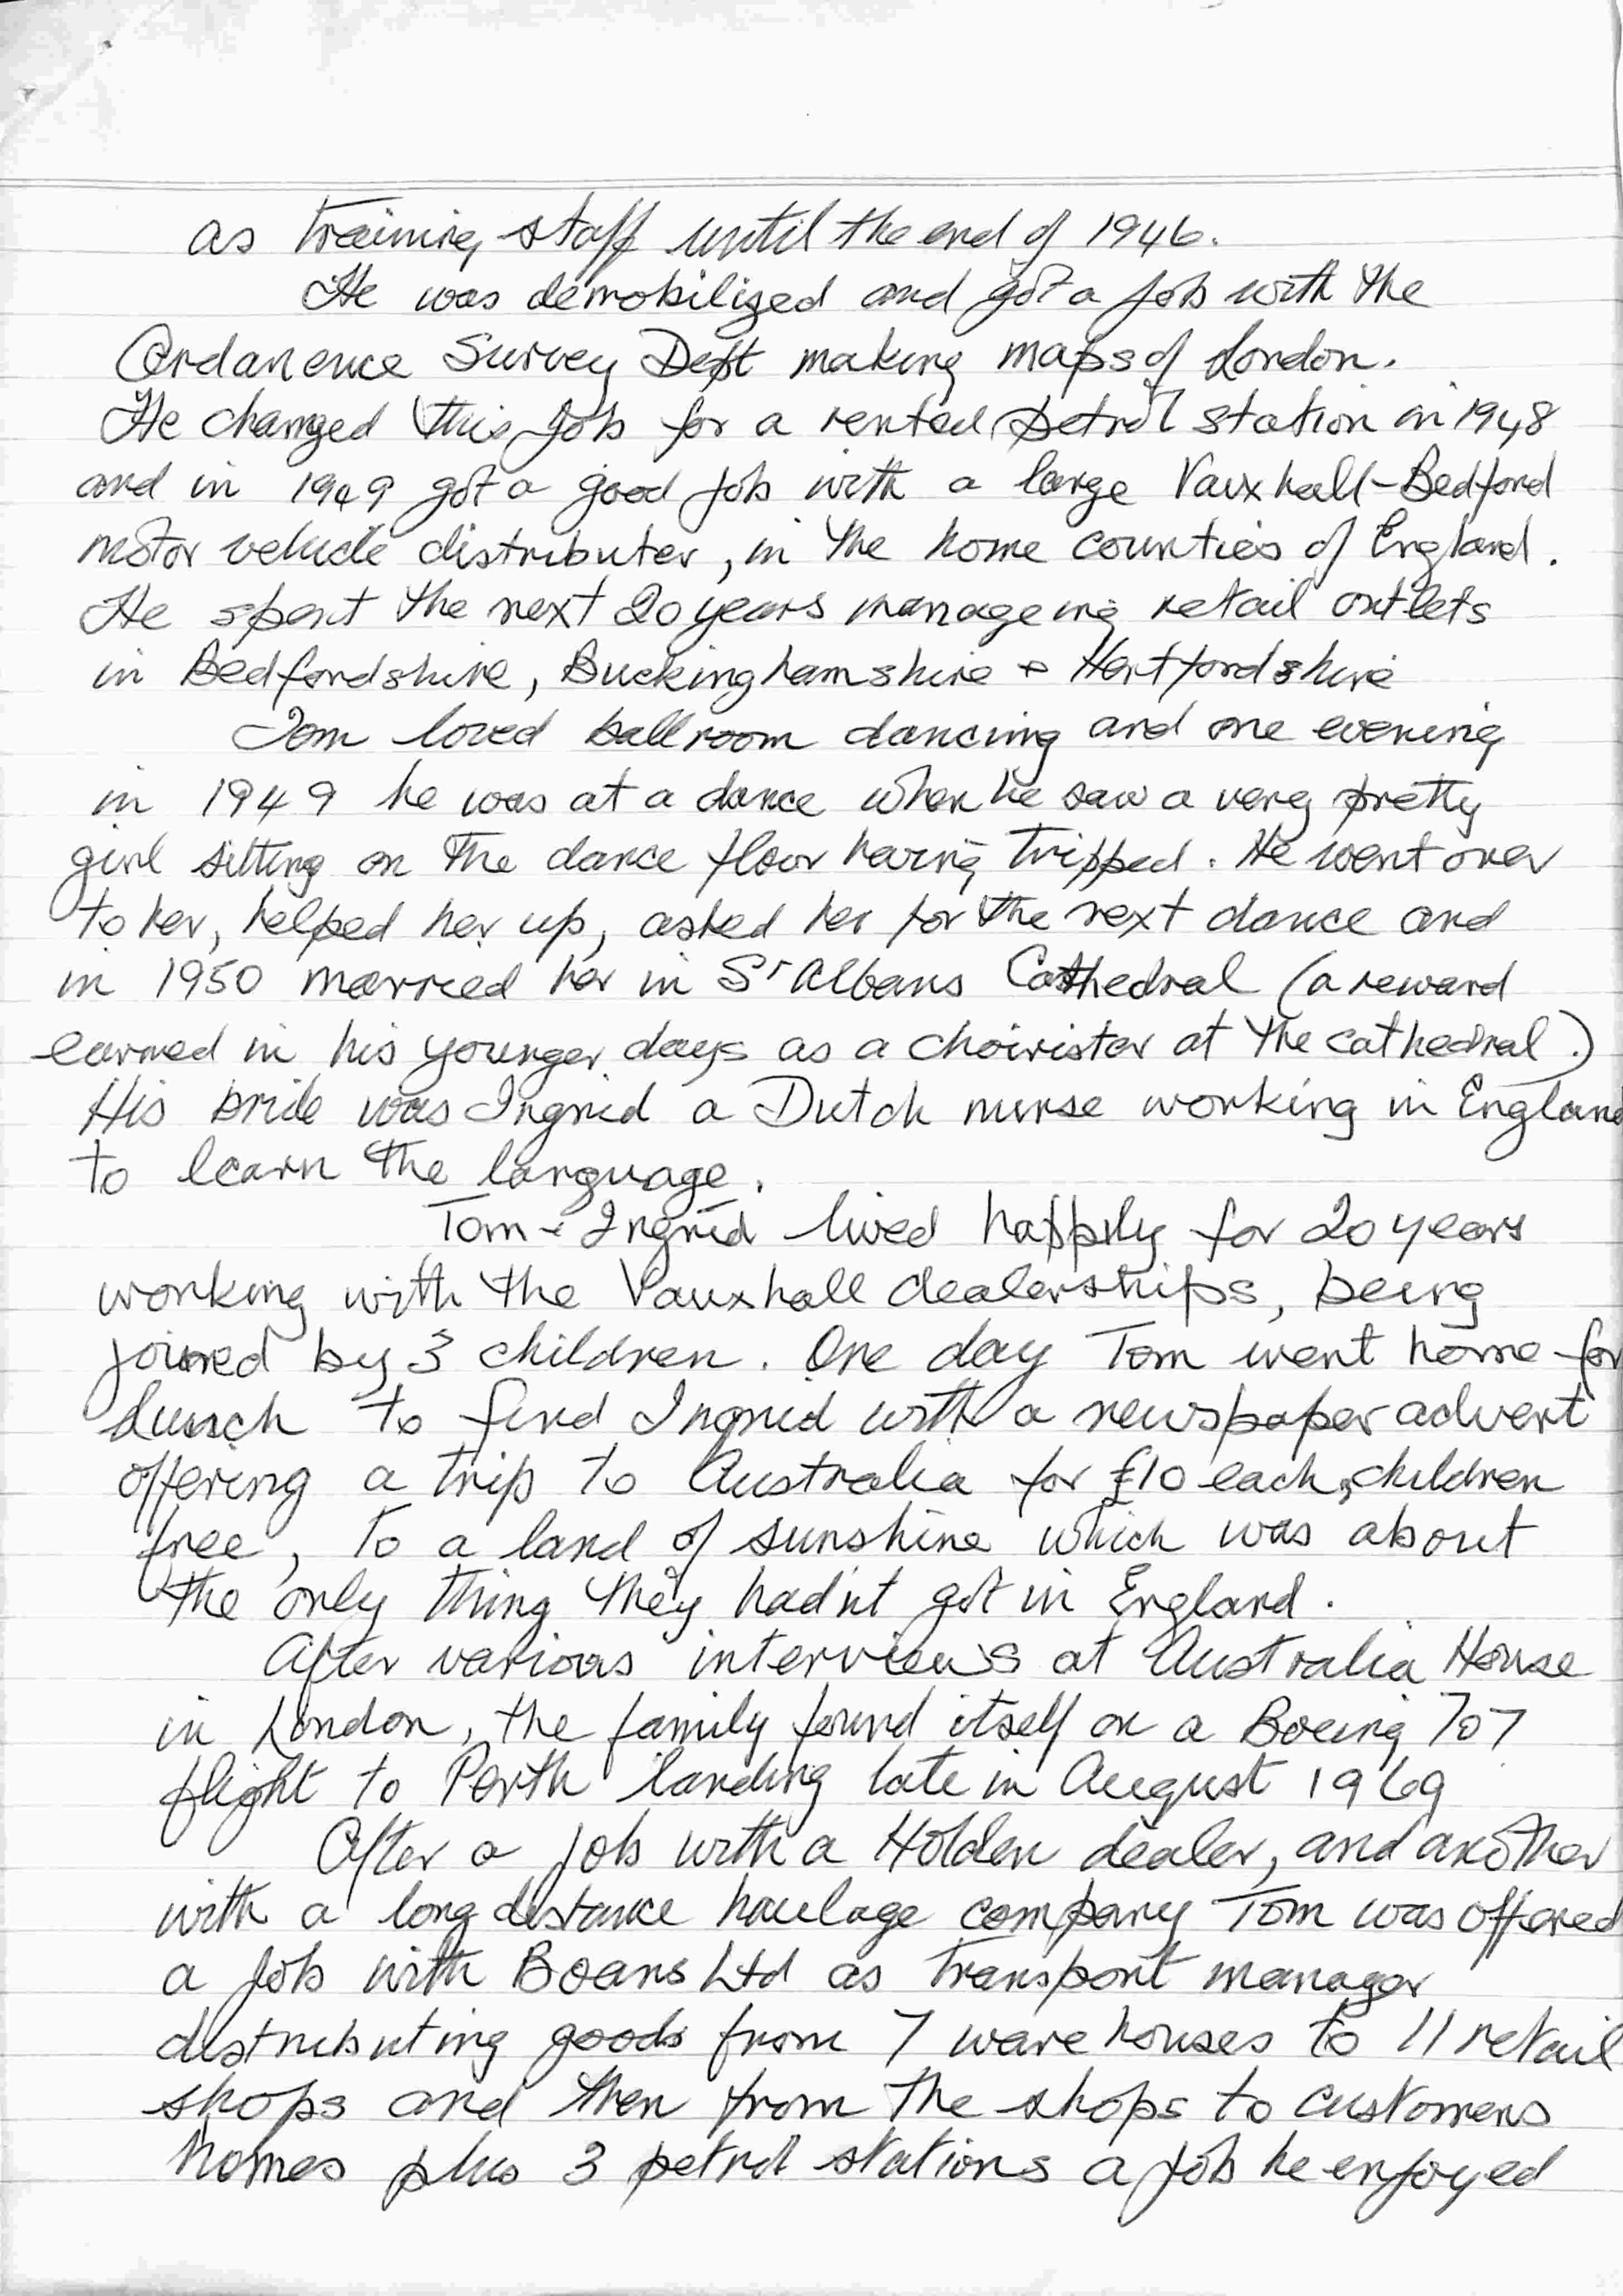 as training staff until the end of 1946.
He was demobilized and got a job with the
Ordanence Survey Dept making maps of London.
He changed this job for a rented petrol station in 1948
and in 1949 got a good job with a large Vauxhall-Bedford
motor vehicle distributer, in the home counties of England.
He spent the next 20 years manageing retail outlets
in Bedfordshire, Buckinghamshire + Hertfordshire
Tom loved ballroom dancing and one evening
in 1949 he was at a dance when he saw a very pretty
girl sitting on the dance floor having tripped. He went over
to her, helped her up, asked her for the next dance and
in 1950 married her in St Albans Cathedral (a reward
earned in his younger days as a choirister at the cathedral.)
His bride was Ingrid a Dutch nurse working in England
to learn the language.
Tom + Ingrid lived happily for 20 years
working with the Vauxhall dealerships, being
joined by 3 children. One day Tom went home for
lunch to find Ingrid with a newspaper advert
offering a trip to Australia for £10 each, children
free, to a land of sunshine which was about
the only thing they hadn't got in England.
After various interviews at Australia House
in London, the family found itself on a Boeing 707
flight to Perth landing late in August 1969
After a job with a Holden dealer, and another
with a long distance haulage company Tom was offered
a job with Boans Ltd as Transport manager
distributing goods from 7 warehouses to 11 retail
shops and then from the shops to customers
homes plus 3 petrol stations a job he enjoyed